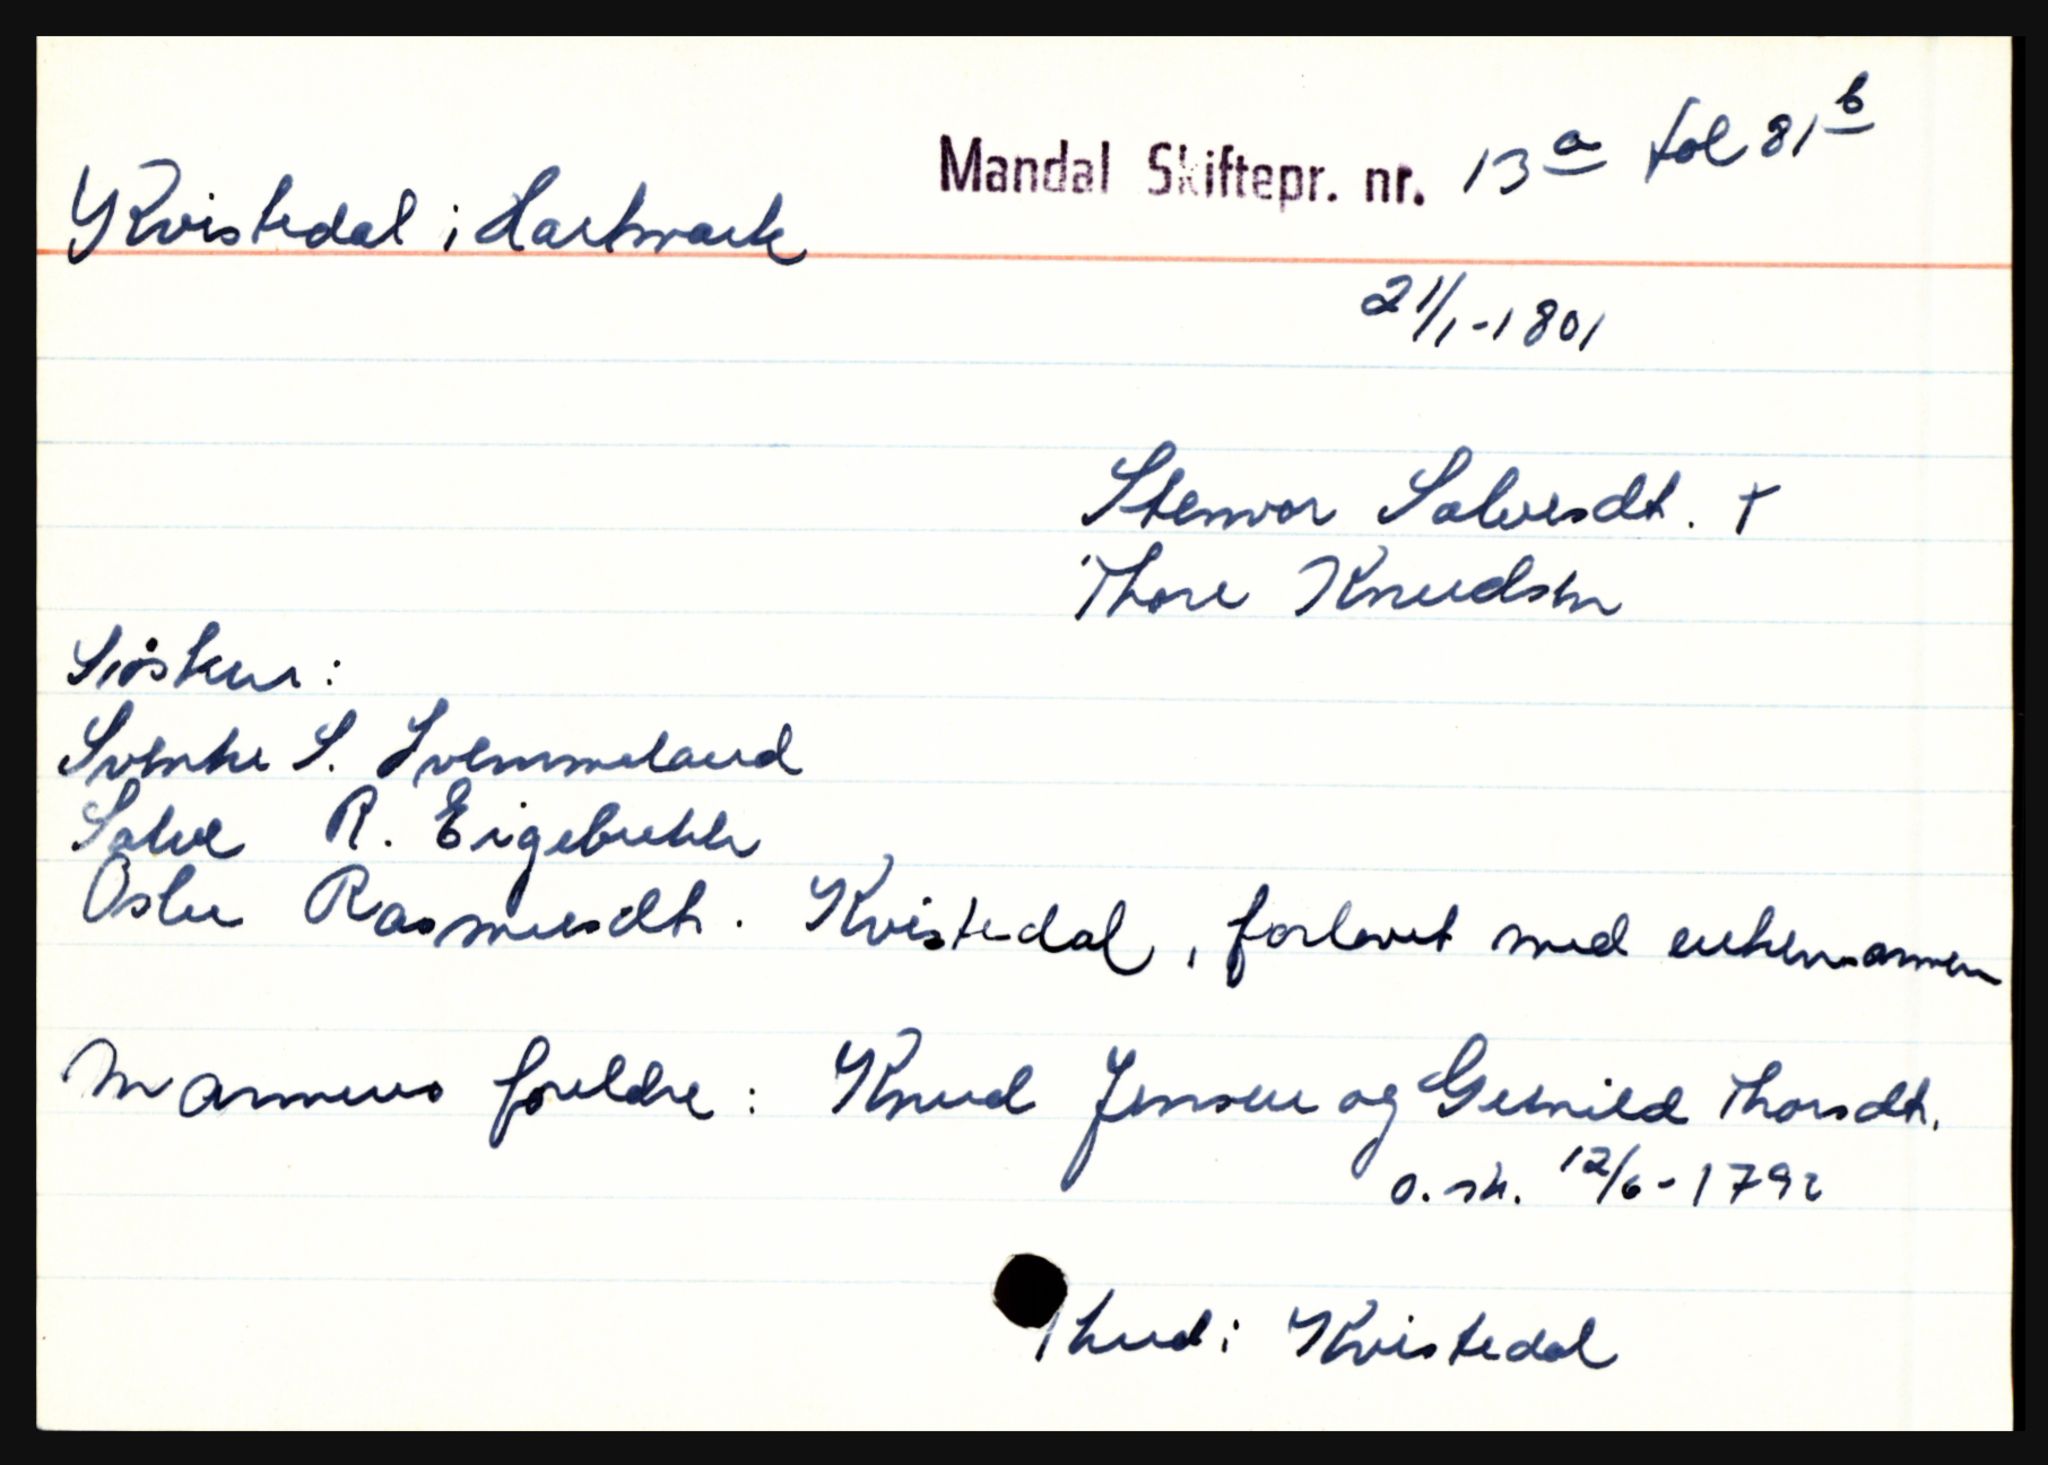 Mandal Skiftepr. nr. 13 a fol 81 b
Kvistedal i Hartmark
21/1-1801
Stenvor Salvesdt. †
Thore Knudsen
Siøsken:
Svenke S. Svenneland
Salve R. Eigebrekk
Oslee Rasmusdt. Kvistedal, forlovet med enkemannen
Mannens foreldre: Knud Jensen og Gunild Thorsdt.
o. sk. 12/6-1792
hud i Kvistedal